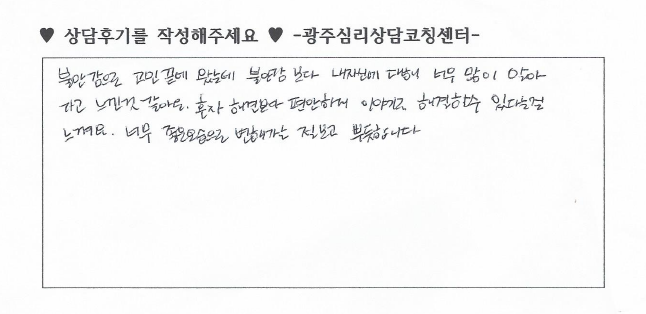 ♥ 상담후기를 작성해주세요 ♥ -광주심리상담코칭센터-
불안감으로 고민 끝에 왔는데 불안감 보다 내자신에 대해서 너무 많이 알아
가고 느낀것 같아요. 혼자 해결보다 편안하게 이야기로 해결할수 있다는걸
느껴요. 너무 좋은모습으로 변해가는 절보고 뿌듯합니다